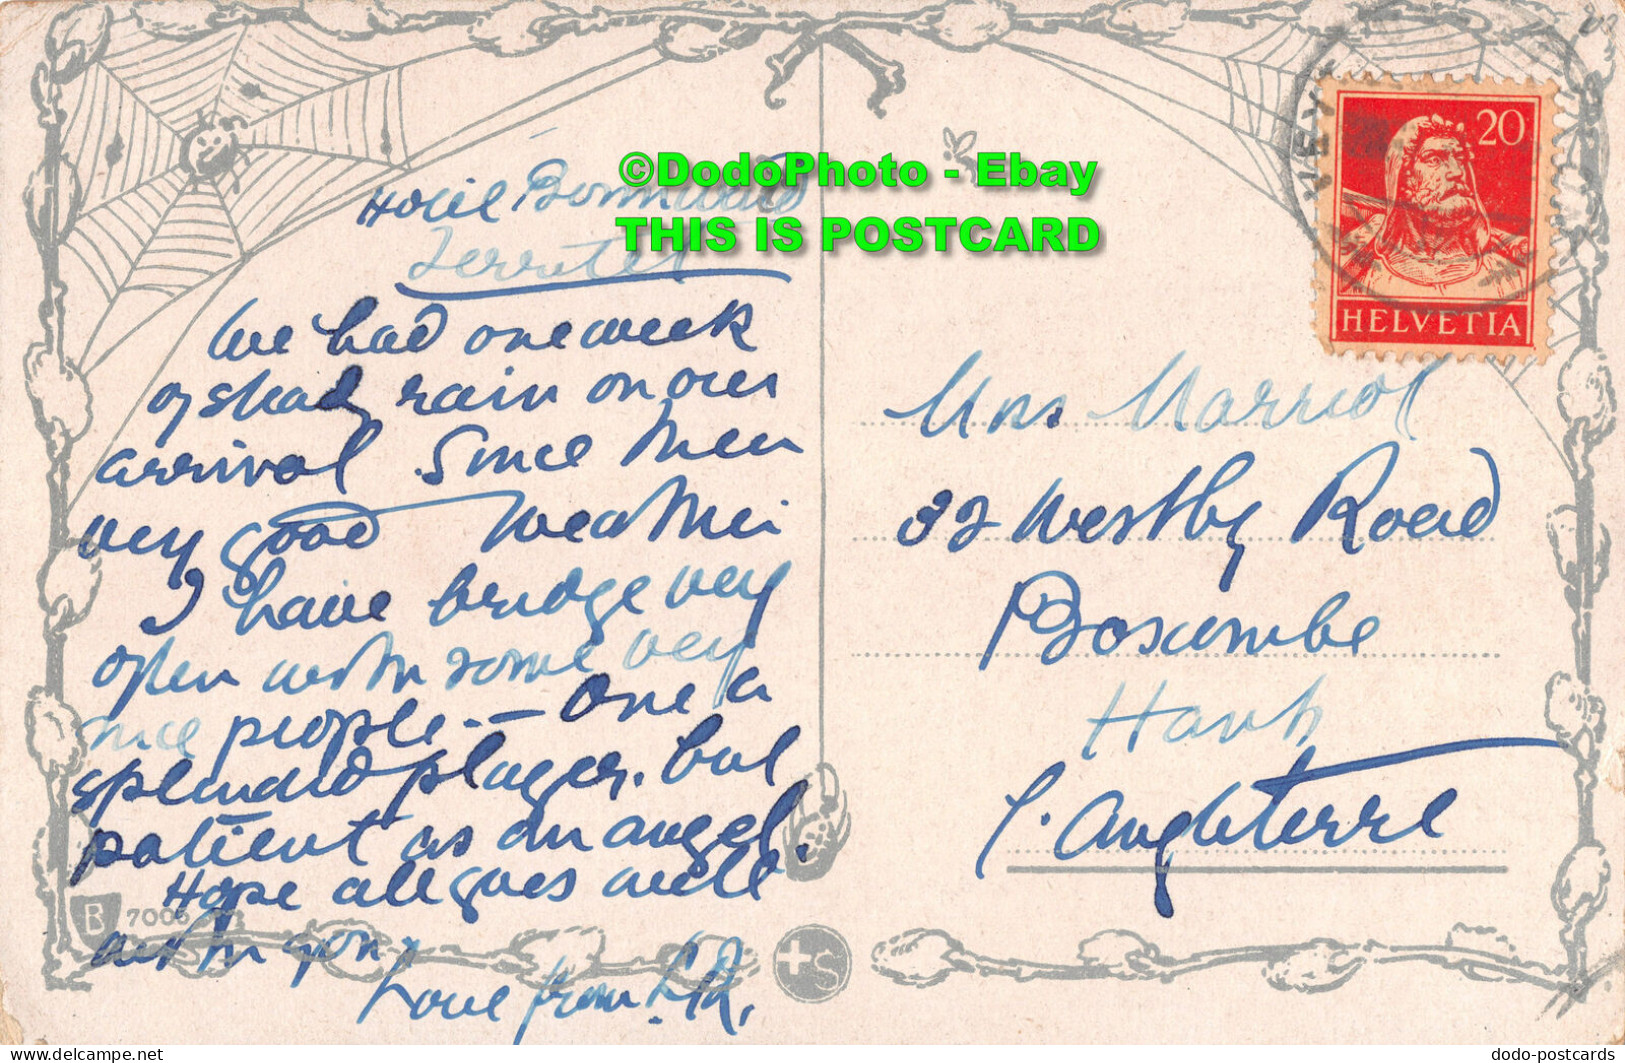 ©DodoPhoto - Ebay
THIS IS POSTCARD
Hotel Bonnivard
Territet
We had one week
of shady rain on our
arrival. Since then
very good weather
I have bridge very
often with some very
nice people. — One a
splendid player. but
patient as an angel.
Hope all goes well
with you
Love from
20
HELVETIA
Mrs. Marriot
32 Westby Road
Boscombe
Hants
Angleterre
R 7006
+S
dodo-postcards
www.delcampe.net